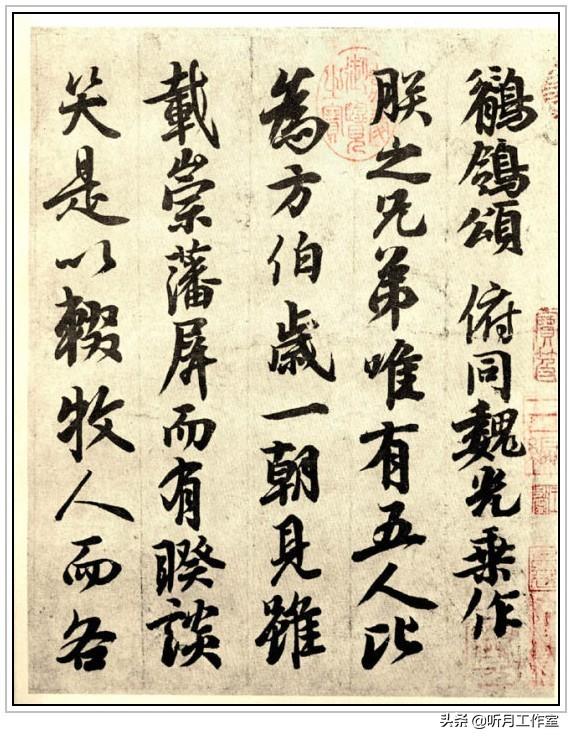 鶺鴒頌 俯同魏光乗作
朕之兄弟唯有五人比
為方伯歳一朝見雖
載崇藩屏而有睽談
笑是以輟牧人而各
头条 @听月工作室